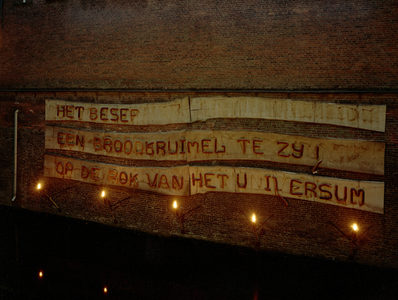 HET BESEF
EEN BROODKRUIMEL TE
OP DE ROK VAN HET UNIVERSUM